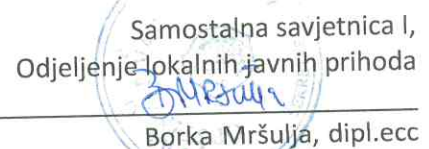 Samostalna savjetnica I,
Odjeljenje lokalnih javnih prihoda
Borka Mršulja, dipl.ecc